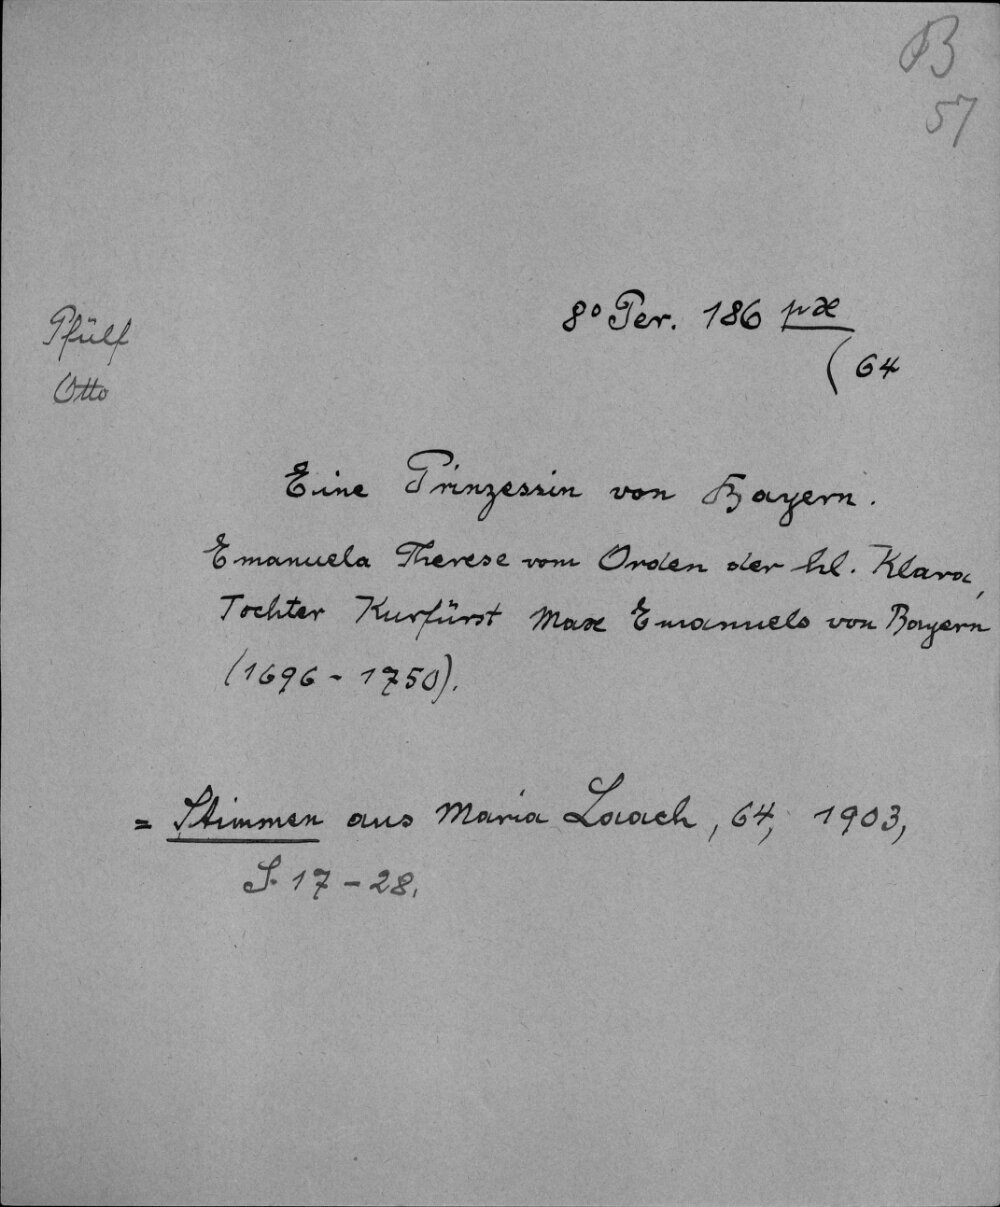 B
57
8° Per. 186 px
(64
Pfülf
Otto
Eine Prinzessin von Bayern.
Emanuela Therese vom Orden der hl. Klara,
Tochter Kurfürst Max Emanuels von Bayern
(1696 - 1750).
= Stimmen aus Maria Laach, 64, 1903,
S. 17 - 28.